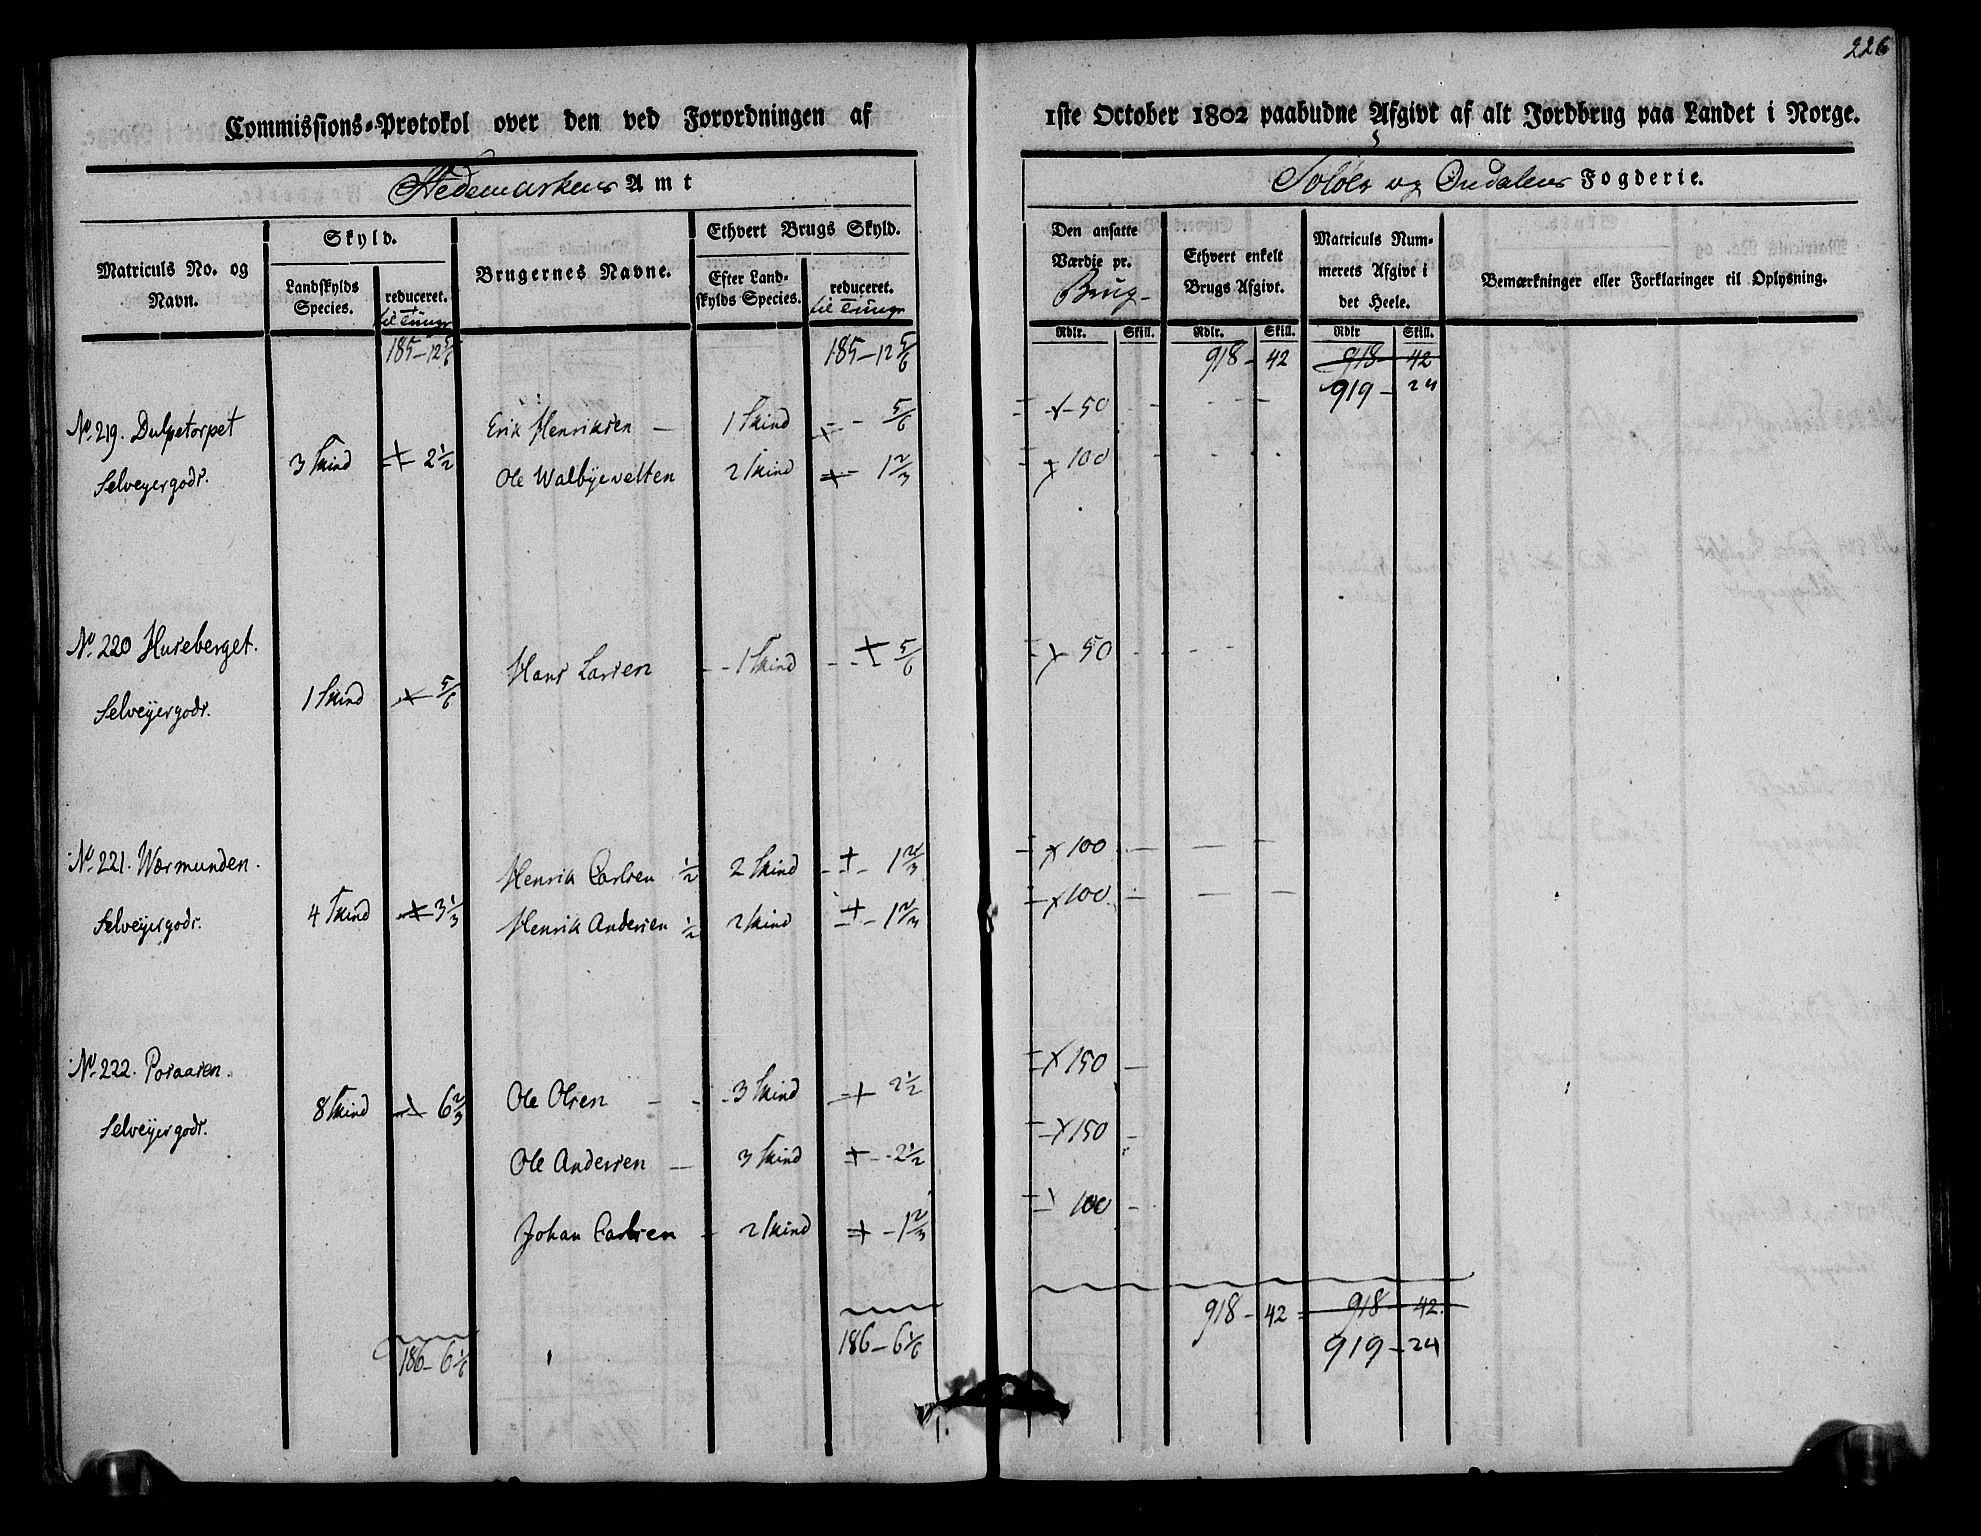 226
Commissions-Protokol over den ved Forordningen af
1ste October 1802 paabudne Afgivt af alt Jordbrug paa Landet i Norge.
Hedemarkens Amt
Soløer og Ourdalens Fogderie.
Matriculs No. og Navn.
Skyld.
Landskylds Species.
reduceret.
til Tunge
Brugernes Navne.
Ethvert Brugs Skyld.
Efter Landskylds Species.
reduceret.
til Tunge
Den ansatte Værdie pr.
Brug
Ethvert enkelt Brugs Afgivt.
Matriculs Nummerets Afgivt i det Heele.
Bemærkninger eller Forklaringer til Oplysning.
Rdlr. Skill. Rdlr. Skill. Rdlr Skill.
185-12 5/6 185-12 5/6 918-42 918-42
919-24
No. 219. Dulpetorpet Erik Henriksen - 1 Skind 5/6 50
Selveyergods. 3 Skind 2 1/2 Ole Walbyevelten 2 Skind 1 2/3 100
No. 220 Huseberget.
Selveyergods. 1 Skind 5/6 Hans Larsen 1 Skind 5/6 50
No. 221. Wærmunden. Henrik Carlsen 1/2 2 Skind 1 2/3 100
Selveyergods. 4 Skind 3 1/3 Henrik Andersen 1/2 2 Skind 1 2/3 100
No. 222. Poraasen.
Selveyergods. 8 Skind 6 2/3 Ole Olsen 3 Skind 2 1/2 150
Ole Andersen 3 Skind 2 1/2 150
Johan Carlsen 2 Skind 1 2/3 100
186-6 1/6 186-6 1/6 918-42 918-42
919-24